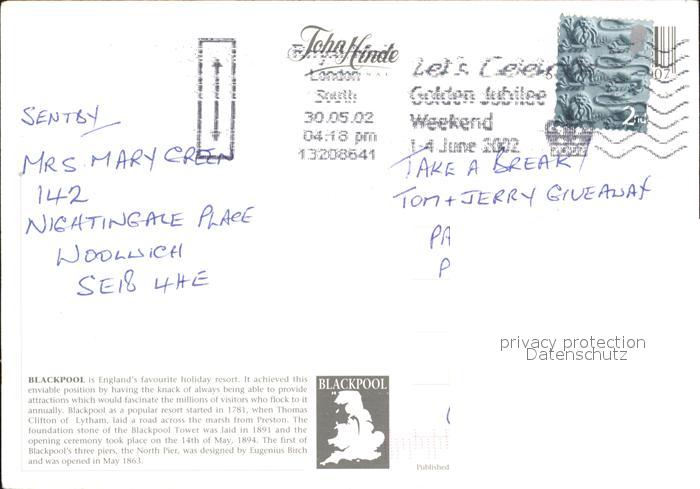 John Hinde
London
South
30.05.02
04:18 pm
13208641
Let's
Golden Jubilee
Weekend
1-4 June 2002
2ND
07
SENT BY
MRS MARY GREEN
142
NIGHTINGALE PLACE
WOOLWICH
SE18 4HE
TAKE A BREAK
TOM + JERRY GIVEAWAY
PA
P
privacy protection
Datenschutz
BLACKPOOL is England's favourite holiday resort. It achieved this
enviable position by having the knack of always being able to provide
attractions which would fascinate the millions of visitors who flock to it
annually. Blackpool as a popular resort started in 1781, when Thomas
Clifton of Lytham, laid a road across the marsh from Preston. The
foundation stone of the Blackpool Tower was laid in 1891 and the
opening ceremony took place on the 14th of May, 1894. The first of
Blackpool's three piers, the North Pier, was designed by Eugenius Birch
and was opened in May 1863.
BLACKPOOL
Published